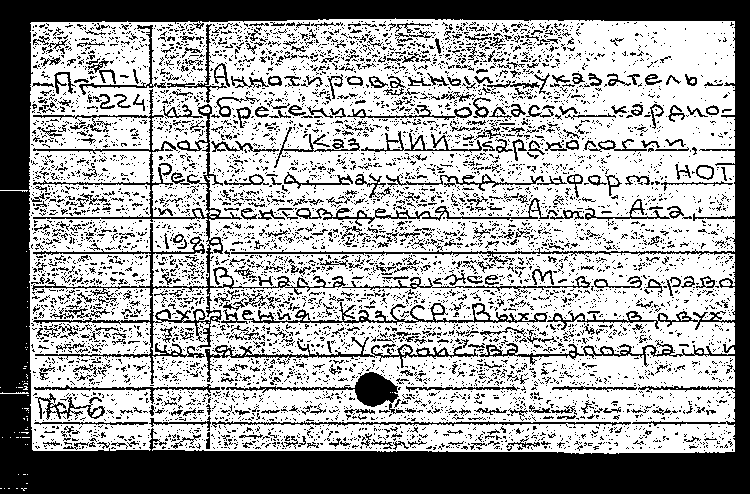 Аннотированный указатель
П-1
224
изобретений в области кардио-
логии / Каз. НИИ кардиологии,
Респ. отд. науч-мед. информ., НОТ
и патентоведения - Алма-Ата,
1989.-
В надзаг. также М-во здраво
охранения КазССР. Выходит в двух
частях. Ч.1. Устройства, аппараты и